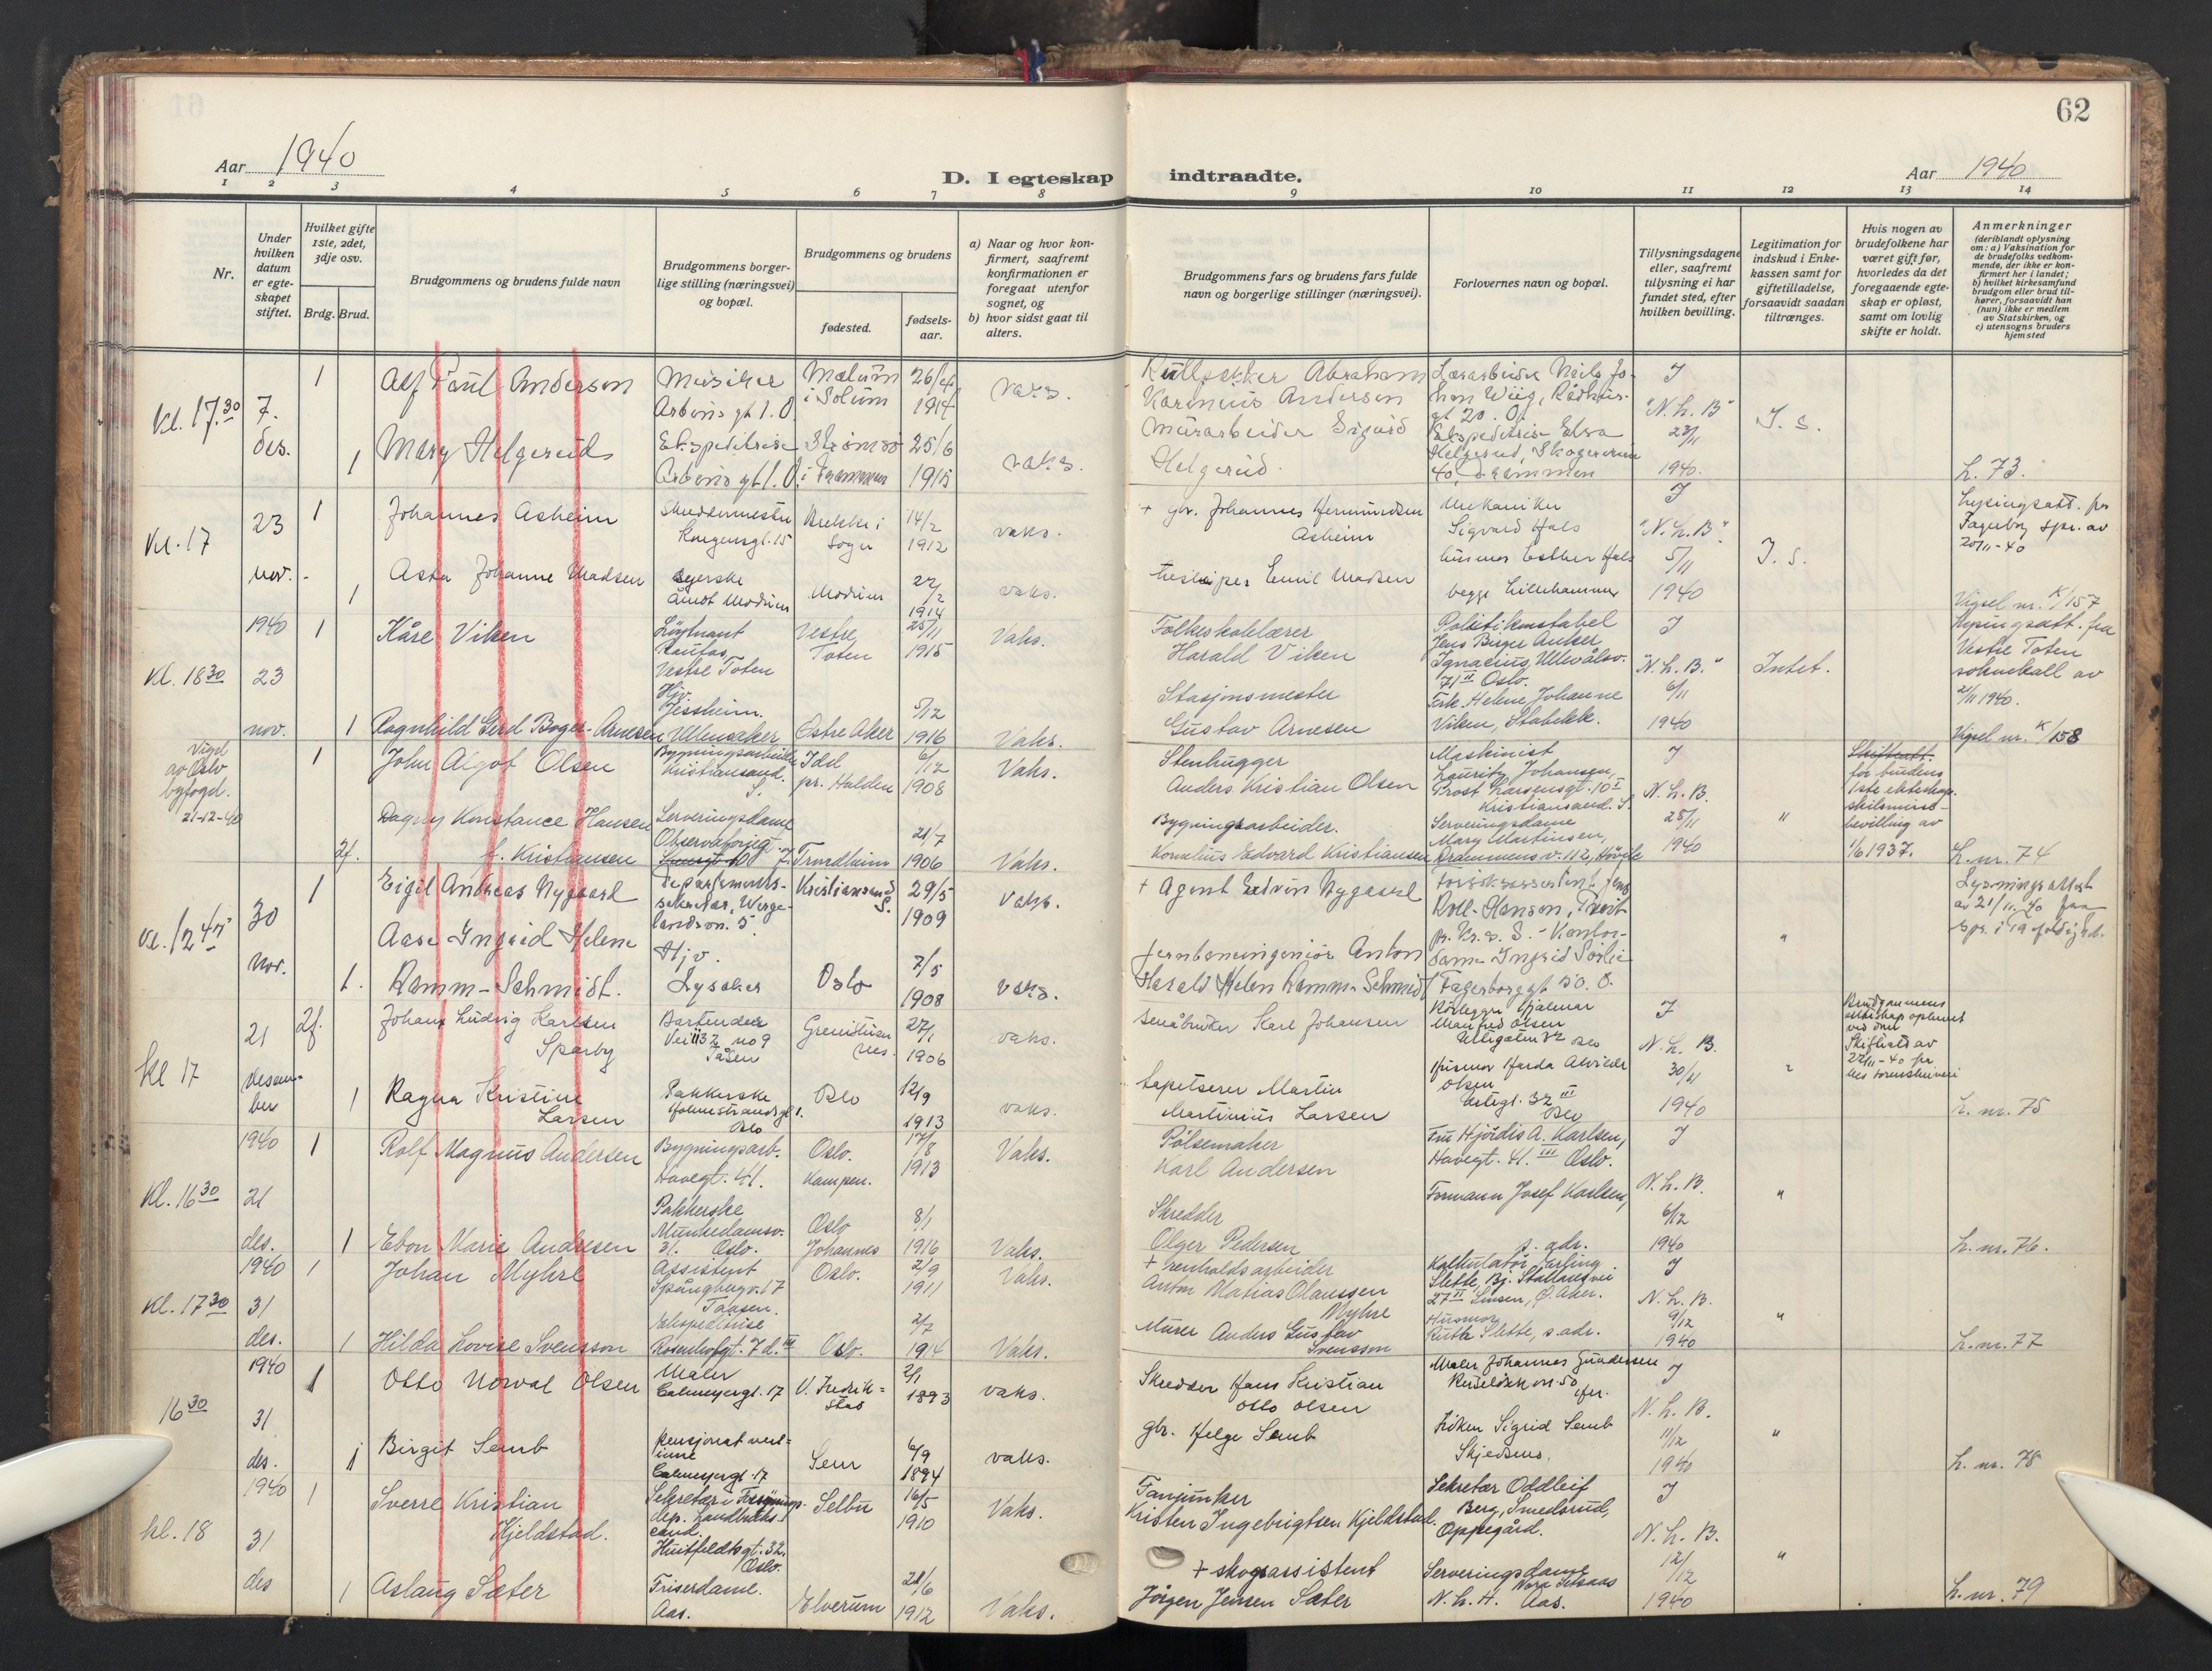 62
Aar 1940
D. I egteskap indtraadte.
Aar 1940
1 2 3 4 5 6 7 8 9 10 11 12 13 14
Nr.
Under hvilken datum er egteskapet stiftet.
Hvilket gifte 1ste, 2det, 3dje osv.
Brdg. Brud.
Brudgommens og brudens fulde navn
Brudgommens borgerlige stilling (næringsvei) og bopæl.
Brudgommens og brudens
fødested.
fødselsaar.
a) Naar og hvor konfirmert, saafremt konfirmationen er foregaat utenfor sognet, og
b) hvor sidst gaat til alters.
Brudgommens fars og brudens fars fulde navn og borgerlige stillinger (næringsvei).
Forlovernes navn og bopæl.
Tillysningsdagene eller, saafremt tillysning ei har fundet sted, efter hvilken bevilling.
Legitimation for indskud i Enkekassen samt for giftetilladelse, forsaavidt saadan tiltrænges.
Hvis nogen av brudefolkene har været gift før, hvorledes da det foregaaende egteskap er opløst, samt om lovlig skifte er holdt.
Anmerkninger
(deriblandt oplysning om: a) Vaksination for de brudefolks vedkommende, der ikke er konfirmert her i landet; b) hvilket kirkesamfund brudgom eller brud tilhører, forsaavidt han (hun) ikke er medlem av Statskirken, og c) utensogns bruders hjemsted
Kl. 17.30
7. des.
1
Alf Paul Anderson
Musiker
Arbins gt 1. O.
Mælum i Solum
26/4 1914
vaks.
Abraham Karenius Anderson
Nils Johan Wiig, Rådhusgt 20. O.
J
"N.L.B"
23/11 1940.
J. s.
1
Mary Helgerud
Ekspeditrise
Arbins gt 1. O.
Strømsø i Drammen
25/6 1915
vaks.
Murarbeider Sigurd Helgerud.
Ekspeditrise Elsa Helgerud,
40, Drammen
L. 73.
Kl. 17
23 nov.
1
Johannes Asheim
Skreddermester
Kongensgt. 15
Brekke i Sogn
14/2 1912
vaks.
+ gbr. Johannes Hermundsen Asheim
Mekaniker Sigvard Hals
J
"N.L.B."
5/11 1940
J. S.
Lysingsatt. fra Fagerborg spr. av 20/11-40
1
Asta Johanne Madsen
Syerske
Åmot Modum
Modum
22/2 1914
vaks.
Tresliper Emil Madsen
husmor Esther Hals
begge Lillehammer
Vigsel nr. K/157
1940
Kl. 18 30
23 nov.
1
Kåre Viken
Løytnant
Raufoss,
Vestre Toten
Vestre Toten
25/11 1915
Vaks.
Folkeskolelærer
Harald Viken
Politikonstabel
Jens Birger Anker
Ignacius, Ullevålsv.
71 II Oslo.
J
"N.L.B."
6/11 1940
Intet.
Lysingsatt. fra
Vestre Toten
soknekall av
21/11 1940.
1
Ragnhild Gerd Boger-Arnesen
Hjv.
Jessheim.
Ullensaker
Østre Aker
5/12 1916
Vaks.
Stasjonsmester
Gustav Arnesen
Frk. Helene Johanne
Viken, Stabekk.
Vigsel nr. K/158
Vigd av Oslo byfogd. 21-12-40
1
John Algot Olsen
Bygningsarbeider
Kristiansand. S.
Idd pr. Halden
6/12 1908
Vaks.
Stenhugger
Anders Kristian Olsen
Maskinist
Lauritz Johansen,
Prost Larsensgt. 10 I
Kristiansand. S.
J
N.L.B.
28/11 1940
"
Skifteatt.
for brudens
1ste ekteskap.
skilsmisse-
bevilling av
1/6 1937.
2f.
Dagny Konstance Hansen
f. Kristiansen
Serveringsdame
Trondheim
21/7 1906
Vaks.
Bygningsarbeider.
Kornelius Edvard Kristiansen
Serveringsdame
Mary Martinsen,
Drammensv. 112, Høvik
L. nr. 74
Kl. 12 45
30 Nov.
1
Eigil Andreas Nygaard
Departements-
sekretær, Werge-
landsvn. 5.
Kristiansand S.
29/5 1909
vaks.
+ Agent Edvin Nygaard
Jens
Roll-Hansen, Tveit
pr. Kr. s. S. - Kontor-
dame Ingrid Sørlie
Fagerborggt 50. O.
"
Lysningsattest
av 21/11-40 fra
spr. i
1.
Aase Ingrid Helene
Ramm-Schmidt.
Hjv.
Lysaker
Oslo
7/5 1908
vaks.
Jernbaneingeniør Anton
Harald Helen Ramm-Schmidt
kl 17
21 desember 1940
2f.
Johan Ludvig Karlsen
Sparby
Bartender
Vei 32 no 9
Tåsen
27/1 1906
vaks.
Småbruker Karl Johansen
Rørlegger Hjalmar
Manfred Olsen
J
N.L.B.
30/11 1940
Brudgommens
ekteskap opløst
ved død
Skifteatt av
22/11-40 fra
Nes sorenskriveri
1
Ragna Kristine
Larsen
Pakkerske
Holmestrandsgt 1.
Oslo
Oslo
12/9 1913
vaks.
Tapetserer Martin
Martinius Larsen
Husmor
Olsen
32 III
Oslo
L. nr. 75
Kl. 16 30
21 des. 1940
1
Rolf Magnus Andersen
Bygningsarb.
Havegt. 41.
Oslo.
Kampen.
17/8 1913
Vaks.
Pølsemaker
Karl Andersen
Fru Hjørdis A. Karlsen,
Havegt. 41. III Oslo.
J
N.L.B.
6/12 1940
"
1
Ebon Marie Andresen
Pakkerske
Munkedamsv.
31. Oslo.
Oslo
Johannes
8/1 1916
Vaks.
Skredder
Olger Pedersen
Formann Josef Karlsen,
s. adr.
L. nr. 76.
Kl. 17 30
31 des. 1940
1
Johan Myhre
Assistent
Spångbergv. 17
Taasen.
Oslo.
2/9 1911
Vaks.
+ Renholdsarbeider
Anton Matias Olaussen
Myhre
Kalkulatør Erling
Slette, Bj. Stallaresvei
27 II Linsen, Ø. Aker.
J
N.L.B.
9/12 1940
"
1
Hilda Lovise Svensson
Ekspeditrise
Rosenhofgt. 7 d. III
Oslo.
2/7 1914
Vaks.
Murer Anders Gustav
Svensson
Husmor
Ruth Slette, s. adr.
L. nr. 77
16 30
31 des. 1940
1
Otto Norval Olsen
Maler
Calmeyergt. 17
V. Fredrikstad
2/1 1893
vaks.
Skredder Hans Kristian
Otto Olsen
Maler Johannes Gundersen
J
N.L.B.
11/12 1940
"
1
Birgit Semb
pensjonat vertinne
Calmeyergt. 17
Sem
6/9 1894
vaks.
gbr. Helge Semb
Frøken Sigrid Semb
L. nr. 78
kl. 18
31 des
1
Sverre Kristian
Kjeldstad.
Sekretær i Forsynings-
dep. Landbruks-
cand.
Huitfeldtsgt. 32.
Oslo.
Selbu
16/5 1910
Vaks.
Fanejunker
Kristen Ingebrigtsen Kjeldstad.
Sekretær Oddleif
Berg, Smedsrud,
Oppegård.
J
N.L.B.
12/12 1940
"
1
Aslaug Sæter
Friserdame.
Aas.
Elverum
21/6 1912
Vaks.
+ skogassistent
Jørgen Jensen Sæter
Serveringsdame
N.L.H. Aas.
L. nr. 79